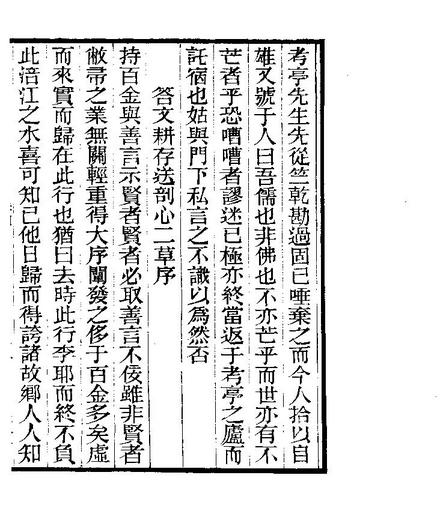 考亭先生先從竺乾勘過固已唾棄之而今人拾以自
雄又號于人曰吾儒也非佛也不亦芒乎而世亦有不
芒者乎恐嘈嘈者謬迷已極亦終當返于考亭之廬而
託宿也姑與門下私言之不識以為然否
答文耕存送剖心二草序
持百金與善言示賢者賢者必取善言不佞雖非賢者
敝帚之業無關輕重得大序闡發之侈于百金多矣虛
而來實而歸在此行也猶曰去時此行李耶而終不負
此涪江之水喜可知已他日歸而得誇諸故鄉人人知